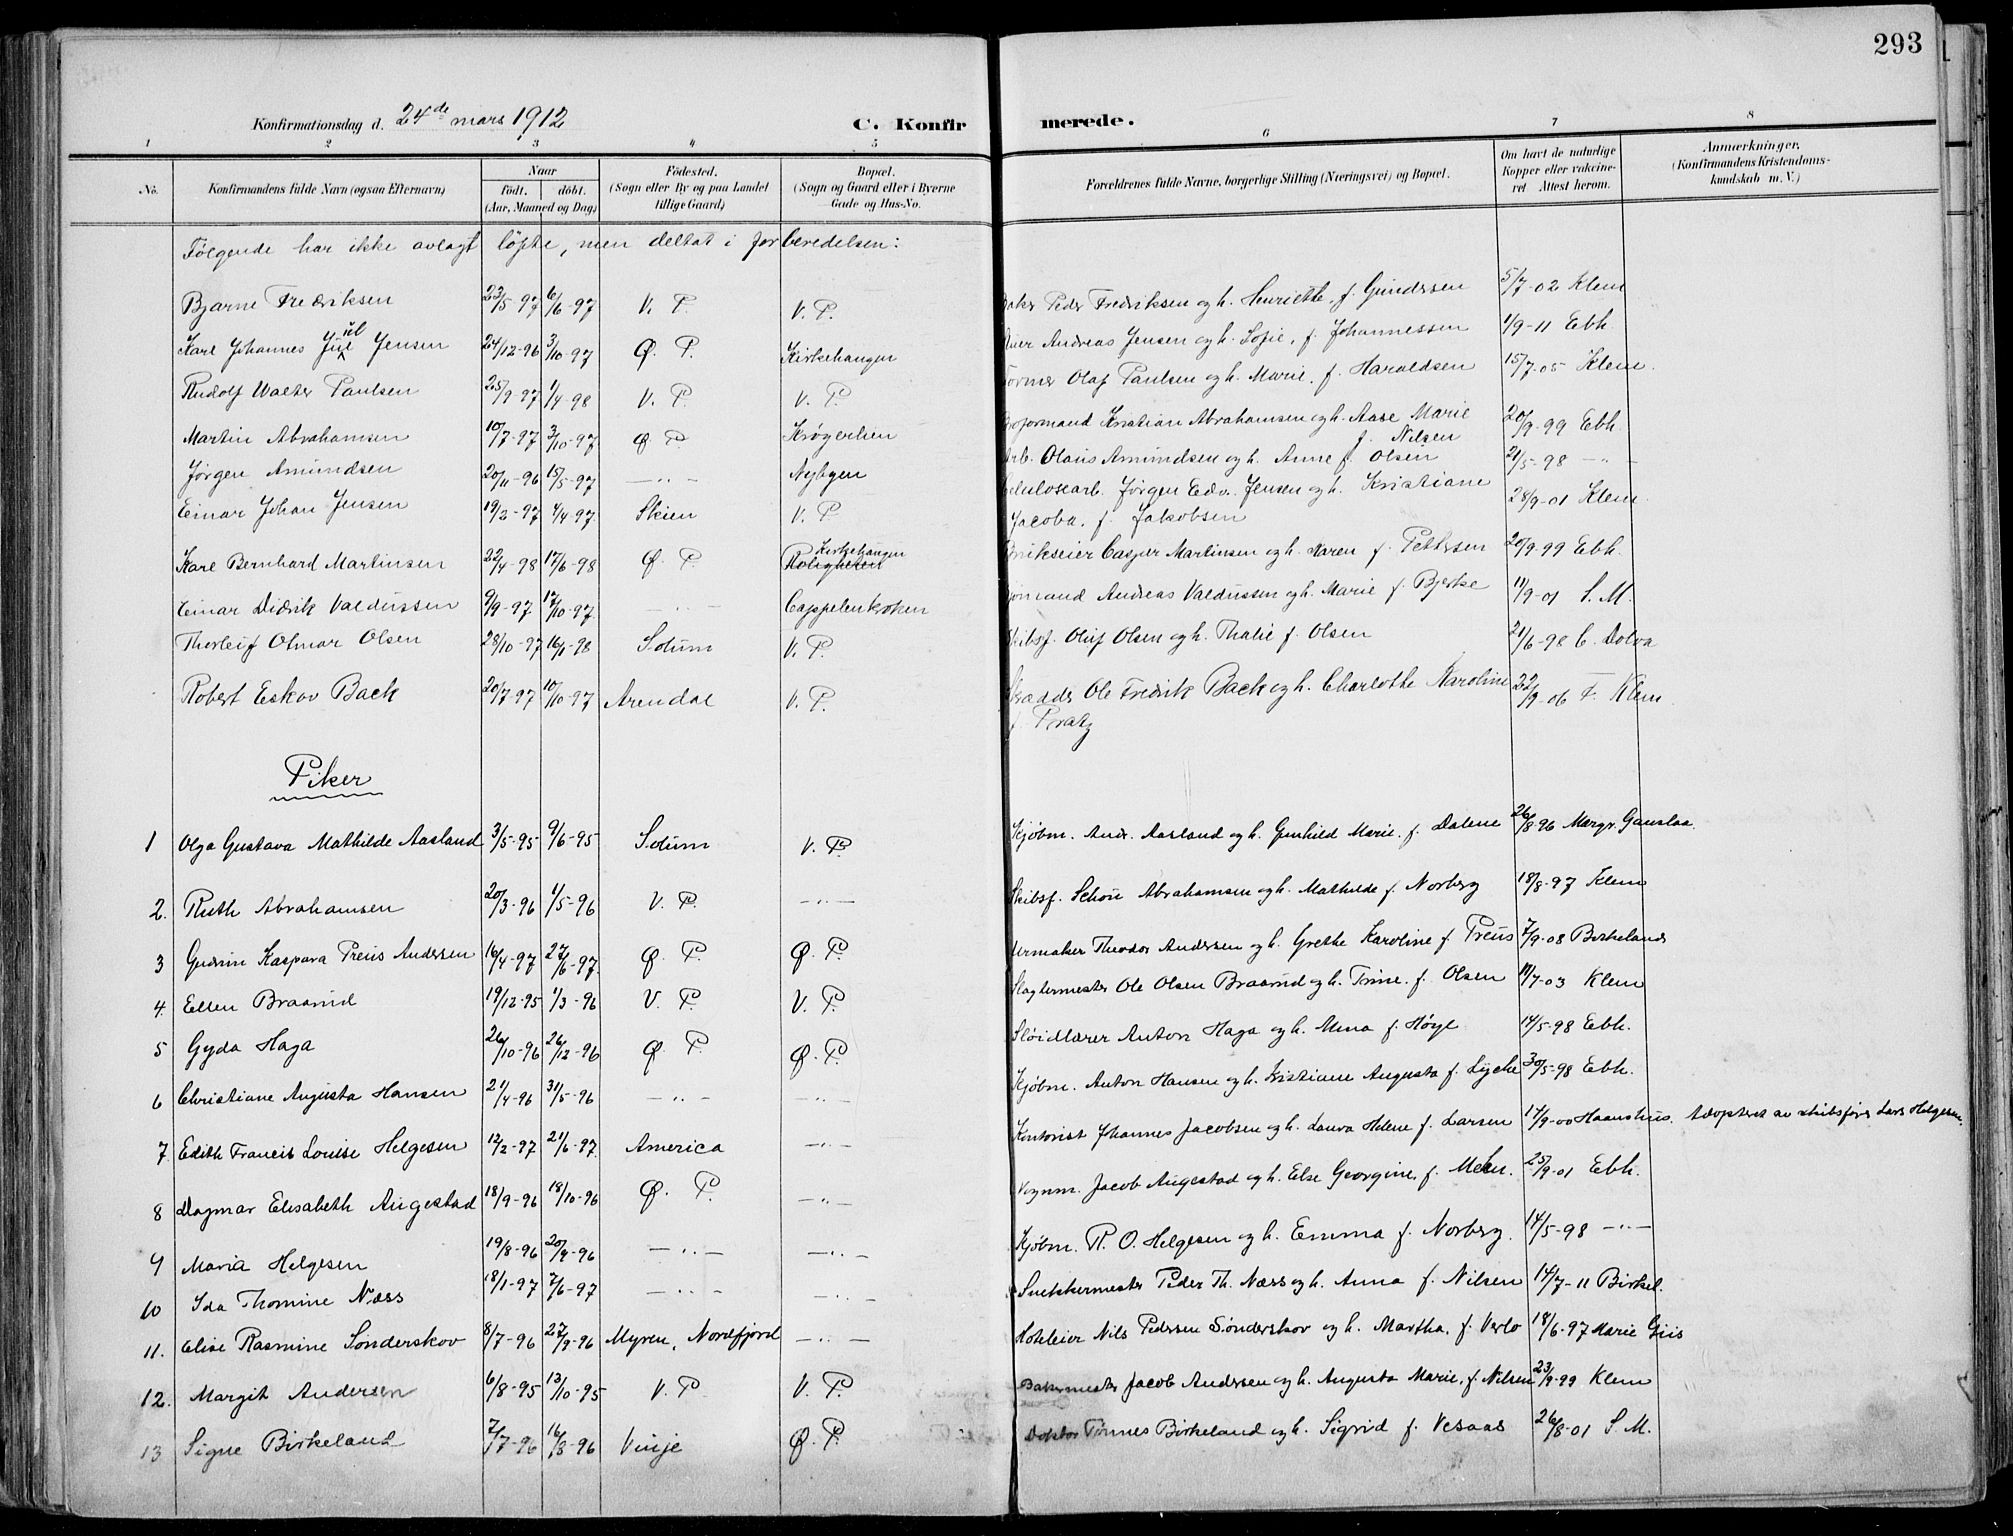 293
Konfirmationsdag d. 24de mars 1912 C. Konfirmerede.
1 2 3 4 5 6 7 8
No. Konfirmandens fulde Navn (ogsaa Efternavn) Naar født. døbt. (Aar, Maaned og Dag) Fødested. (Sogn eller By og paa Landet tillige Gaard) Bopæl. (Sogn og Gaard eller i Byerne Gade og Hus-No. Forældrenes fulde Navne, borgerlige Stilling (Næringsvei) og Bopæl. Om havt de naturlige Kopper eller vaccineret Attest herom. Anmærkninger. (Konfirmandens Kristendomskundskab m. V.)
Følgende har ikke avlagt løfte, men deltat i forberedelsen:
Bjarne Fredriksen 23/5-97 6/6-97 V. P. V. P. Peder Fredriksen og h. Henriette f. Gundersen 5/7-02 Klem
Karl Johannes Juel Jensen 24/12-96 3/10-97 Ø. P. Kirkehaugen Andreas Jensen og h. Sofie, f. Johannessen 1/9-11 Ebh.
Rudolf Walter Paulsen 25/9-97 1/4-98 V. P. V. P. Olaf Paulsen og h. Marie, f. Haraldsen 15/7-05 Klem.
Martin Abrahamsen 10/7-97 3/10-97 Ø. P. Krøgerlien Kristian Abrahamsen og h. Aase Marie f. Nilsen 20/9-99 Ebh.
Jørgen Amundsen 20/11-96 15/5-97 —"— Nybyen Arb. Olaus Amundsen og h. Anne f. Olsen 21/5-98 —"—
Einar Johan Jensen 19/2-97 4/4-97 Skien V. P. Celulosearb. Jørgen Edv. Jensen og h. Kristiane
Jacoba, f. Jakobsen 28/9-01 Klem.
Karl Bernhard Martinsen 22/4-98 17/6-98 Ø. P. Kirkehaugen Roligheten Casper Martinsen og h. Karen f. Pettersen 20/9-99 Ebh.
Einar Didrik Valdussen 9/9-97 17/10-97 —"— Cappelenkroken Sømand Andreas Valdussen og h. Marie f. Bjerke 11/9-01 S. M.
Thorleif Otmar Olsen 28/10-97 16/1-98 Solum V. P. Skibsf. Oluf Olsen og h. Thalie f. Olsen 21/6-98 C. Dolva
Robert Eskov Back 20/7-97 10/10-97 Arendal V. P. Skrædder Ole Fredrik Back og h. Charlotte Karoline
f. Pratz 22/9-06 F. Klem
Piker
1 Olga Gustava Mathilde Aasland 3/5-95 9/6-95 Solum V. P. Kjøbm. Andr. Aasland og h. Gunhild Marie, f. Dalene 26/8-96 Margr. Gauslaa
2. Ruth Abrahamsen 20/3-96 1/5-96 V. P. —"— Skibsf. Schou Abrahamsen og h. Mathilde f. Norberg 18/8-97 Klem
3 Gudrun Kaspara Preus Andersen 16/4-97 27/6-97 Ø. P. Ø. P. Urmaker Theodor Andersen og h. Grethe Karoline f. Preus 7/9-08 Birkeland
4. Ellen Braarud 19/12-95 1/3-96 V. P. V. P. Slagtermester Ole Olsen Braarud og h. Trine, f. Olsen 11/7-03 Klem
5 Gyda Haga 26/10-96 26/12-96 Ø. P. Ø. P. Sløidlærer Anton Haga og h. Mina f. Høye 14/5-98 Ebh.
6 Christiane Augusta Hansen 21/4-96 31/5-96 —"— —"— Kjøbm. Anton Hansen og h. Kristiane Augusta f. Lyche 30/5-98 Ebh.
7. Edith Francis Louise Helgesen 12/2-97 21/6-97 America —"— Kontorist Johannes Jacobsen og h. Laura Helene f. Larsen 14/9-00 Haanshus. Adopteret av skibsfører Lars Helgesen.
8 Dagmar Elisabeth Augestad 18/9-96 18/10-96 Ø. P. —"— Vognm. Jacob Augestad og h. Else Georgine, f. Melen. 25/9-01 Ebh.
9 Maria Helgesen 19/8-96 20/9-96 —"— —"— Kjøbm. R. O. Helgesen og h. Emma f. Norberg. 14/5-98 —"—
10 Ida Thomine Næss 18/1-97 7/6-97 —"— —"— Snekkermester Peder Th. Næss og h. Anna f. Nilsen 14/7-11 Birkel.
11. Elise Rasmine Sønderskov 8/7-96 27/9-96 Myren, Nordfjord —"— Hoteleier Nils Pedersen Sønderskov og h. Martha, f. Verlo 18/6-97 Marie Giis
12. Margit Andersen 6/8-95 13/10-95 V. P. V. P. Bakermester Jacob Andersen og h. Augusta Marie, f. Nilsen 23/9-99 Klem
13 Signe Birkeland 7/7-96 16/8-96 Vinje Ø. P. Doktor Tønnes Birkeland og h. Sigrid f. Vesaas 26/8-01 S. M.